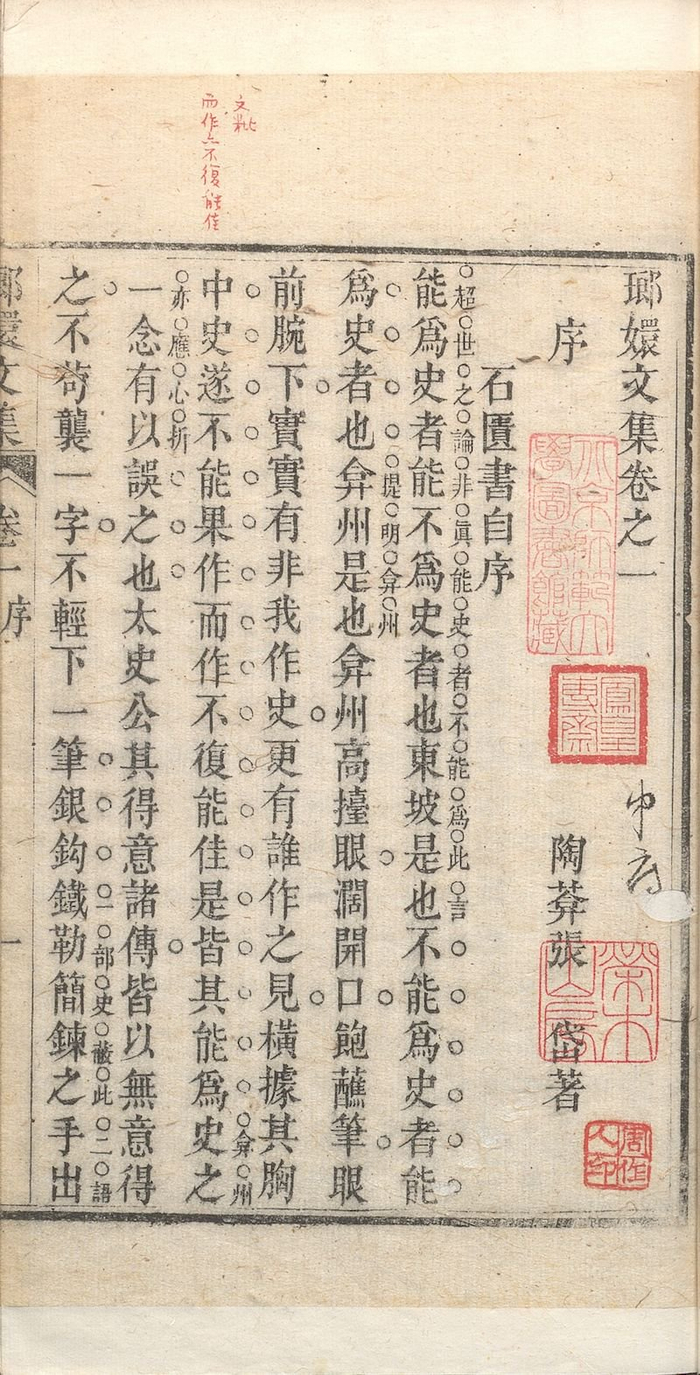 文粃
而作亦不復能佳
瑯嬛文集卷之一
北京師範大學圖書館藏
榮木山房
周作人印
序
陶葊張岱著
石匱書自序
超世之論非眞能史者不能爲此言
能爲史者能不爲史者也東坡是也不能爲史者能
堤明弇州
爲史者也弇州是也弇州高擡眼濶開口飽蘸筆眼
前腕下實實有非我作史更有誰作之見橫據其胸
弇州
中史遂不能果作而作不復能佳是皆其能爲史之
亦應心折
一念有以誤之也太史公其得意諸傳皆以無意得
一部史蔽此二語
之不苟襲一字不輕下一筆銀鈎鐵勒簡鍊之手出
瑯嬛文集 卷一 序 一